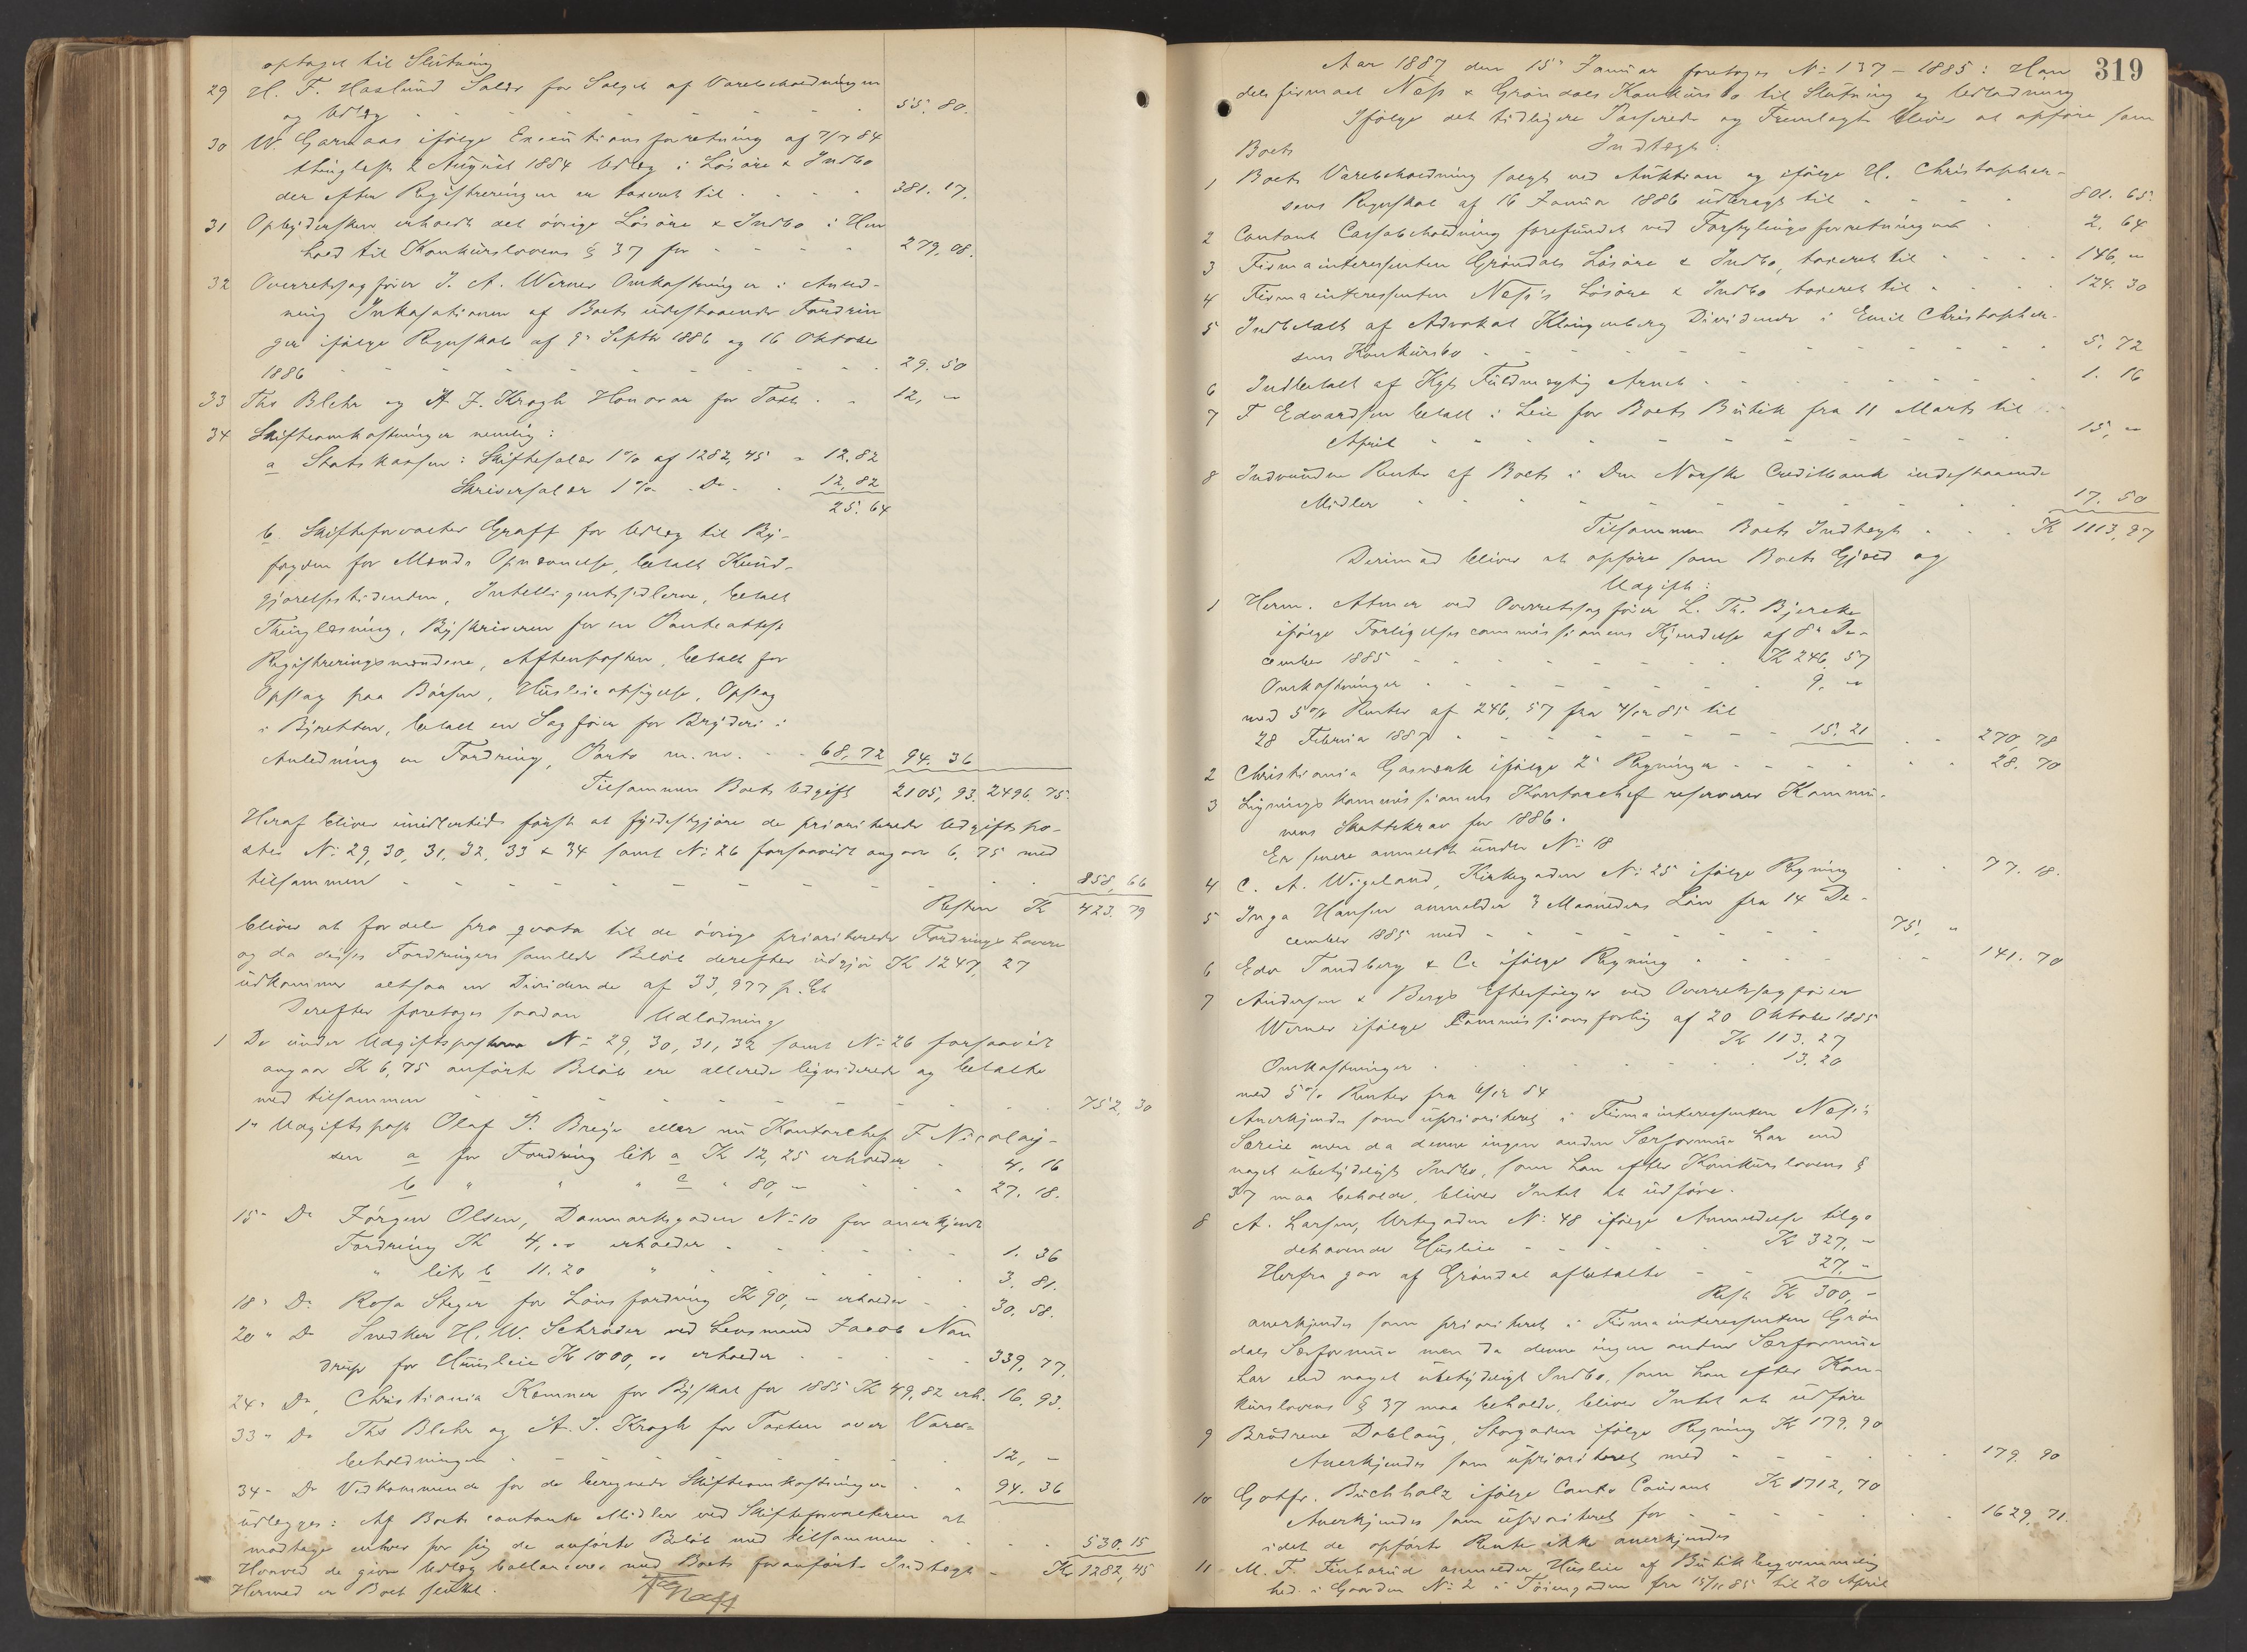 optaget til Slutning
29 H. F. Haslund Salær for Salget af Varebeholdningen
og Udlæg - - - - 55. 80.
30 W. Garmaas ifølge Executionsforretning af 7/7 84
thinglæst 2 August 1884 Udlæg i Løsøre & Indbo
der efter Registreringen er taxeret til - - - 381. 17.
31 Opbydersken erholdt det øvrige Løsøre & Indbo i Hen
hold til Konkurslovens § 37 for - - - 279, 08.
32 Overretssagfører J. A. Werner Omkostninger i Anled-
ning Inkasationen af Boets udestaaende Fordrin
ger ifølge Regnskab af 9 Septbr 1886 og 16 Oktober
1886 - - - - 29. 50
33 Ths Blehr og A. J. Krogh Honorar for Taxt - - 12, "
34 Skifteomkostninger nemlig:
a Statskassen: Skiftesalær 1% af 1282, 45 = 12. 82
Skriversalær 1% Do - 12, 82
25. 64
b. Skifteforvalter Graff for Udlæg til By-
fogden for Mænds Opnævnelse, betalt Kund-
gjørelsestidenden, Intelligentssedlerne, betalt
Thinglæsning, Byskriveren for en Panteattest
Registreringsmændene, Aftenposten, betalt for
Opslag paa Børsen, Husleieopsigelse, Opslag
i Byretten, betalt en Sagfører for Bryderi i
Anledning en Fordring, Porto m. m. - - 68, 72 94. 36
Tilsammen Boets Udgift 2105, 93. 2496. 75.
Heraf bliver imidlertid først at fyldestgjøre de prioriterede Udgiftspo-
ster No 29, 30, 31, 32, 33 & 34 samt No 26 forsaavidt angaar 6, 75 med
tilsammen - - - - 858, 66
Resten Kr 423. 79
bliver at fordele pro qvota til de øvrige prioriterede Fordringshavere
og da disses Fordringers samlede Beløb derefter udgjør Kr 1247, 27
udkommer altsaa en Dividende af 33, 977 p. Ct
Derefter foretoges saadan Udlodning
1 De under Udgiftsposterne No 29, 30, 31, 32 samt No 26 forsaavidt
angaar Kr 6, 75 anførte Beløb ere allerede liqviderede og betalte
med tilsammen - - - - 752, 30
1" Udgiftspost Olaf P. Breye eller nu Kontorchef F Nicolay-
sen a for Fordring litr a Kr 12, 25 erholder - 4, 16
b " " " c " 80, " - - 27. 18.
15" Do Jørgen Olsen, Danmarksgaden No 10 for anerkjendt
Fordring Kr 4, " erholder - - - 1. 36
" litr b 11. 20 " - - - 3. 81.
18" Do Rosa Steger for Lønsfordring Kr 90, " erholder - 30. 58.
20" Do Snedker H. W. Schrøder ved Lensmand Jacob Nan
drup for Huusleie Kr 1000, " erholder - - - 339, 77.
24" Do, Christiania Kæmner for Byskat for 1885 Kr 49, 82 erh. 16. 93.
33" Do Ths Blehr og A. J. Krogh for Taxten over Vare-
beholdningen - - - - 12, "
34" Do Vedkommende for de beregnede Skifteomkostninger - - 94. 36
udlægges: Af Boets contante Midler ved Skifteforvalteren at
modtage enhver for sig de anførte Beløb med tilsammen - - 530. 15
Hvorved de givne Udlæg ballancerer med Boets foranførte Indtægt - Kr 1282, 45
Hermed er Boet sluttet.
Graff
319
Aar 1887 den 15de Januar foretoges No 137 - 1885: Han
delsfirmaet Næss & Grøndals Konkursbo til Slutning og Udlodning
Ifølge det tidligere Passerede og Fremlagte bliver at opføre som
Boets Indtægt:
1 Boets Varebeholdning solgt ved Auktion og ifølge H. Christopher-
sens Regnskab af 16 Januar 1886 udbragt til - - - 801. 65.
2 Contant Cassabeholdning forefundet ved Forseglingsforretningen - - 2, 64
3 Firmainteressenten Grøndals Løsøre & Indbo, taxeret til - - - 146, "
4 Firmainteressenten Næss's Løsøre & Indbo taxeret til - - - 124. 30
5 Indbetalt af Advokat Klingenberg Dividende i Emil Christopher-
sens Konkursbo - - - - 5. 72
6 Indbetalt af Kgl Fuldmægtig Arneb - - - - 1. 16
7 T Edvardsen betalt i Leie for Boets Butik fra 11 Marts til
April - - - - 15, "
8 Indvundne Renter af Boets i Den Norske Creditbank indestaaende
Midler - - - - 17. 50
Tilsammen Boets Indtægt - - - Kr 1113, 97
Derimod bliver at opføre som Boets Gjæld og
Udgift:
1 Herm. Atmer ved Overretssagfører L. Th. Bjercke
ifølge Forligelsescommissionens Kjendelse af 8de De-
cember 1885 - - - Kr 246, 57
Omkostninger - - - 9, "
med 5% Renter af 246, 57 fra 4/12 85 til
28 Februar 1887 - - - 15. 21 - - 270, 78
2 Christiania Gasværk ifølge 2de Regninger - - - 28. 70
3 Ligningskommissionens Kontorchef reserverer Kommu-
nens Skattekrav for 1886.
Er senere anmeldt under No 18
4 C. A. Wigeland, Kirkegaden No 25 ifølge Regning - - 77. 18.
5 Inga Hansen anmelder 3 Maaneders Løn fra 14 De-
cember 1885 med - - - 75, "
6 Edv Tandberg & Co ifølge Regning - - - 141. 70
7 Andersen & Bergs Efterfølger ved Overretssagfører
Werner ifølge Commissionsforlig af 20 Oktober 1885
Kr 113. 27
Omkostninger - - - 13. 20
med 5% Renter fra 6/12 84
Anerkjendes som uprioriteret i Firmainteressenten Næss's
Særeie men da denne ingen anden Særformue har end
noget ubetydeligt Indbo, som han efter Konkurslovens §
37 maa beholde, bliver Intet at udføre.
8 A. Larsen, Urtegaden No 48 ifølge Anmeldelse tilgo
dehavende Husleie - - - Kr 327, "
Herfra gaar af Grøndal afbetalte - - 27, "
Rest Kr 300, "
anerkjendes som prioriteret i Firmainteressenten Grøn
dals Særformue men da denne ingen anden Særformue
har end noget ubetydeligt Indbo, som han efter Kon-
kurslovens § 37 maa beholde, bliver Intet at udføre
9 Brødrene Dobloug, Storgaden ifølge Regning Kr 179. 90
Anerkjendes som uprioriteret med - - - 179. 90
10 Gothfr. Buchholz ifølge Conto Courant Kr 1712, 70
Anerkjendes som uprioriteret for - - - 1629, 71.
idet de opførte Renter ikke anerkjendes
11 M. F. anmelder Husleie af Butik beqvemmelig
hed i Gaarden No 2 i Tøiengaden fra 15/11 85 til 20 April